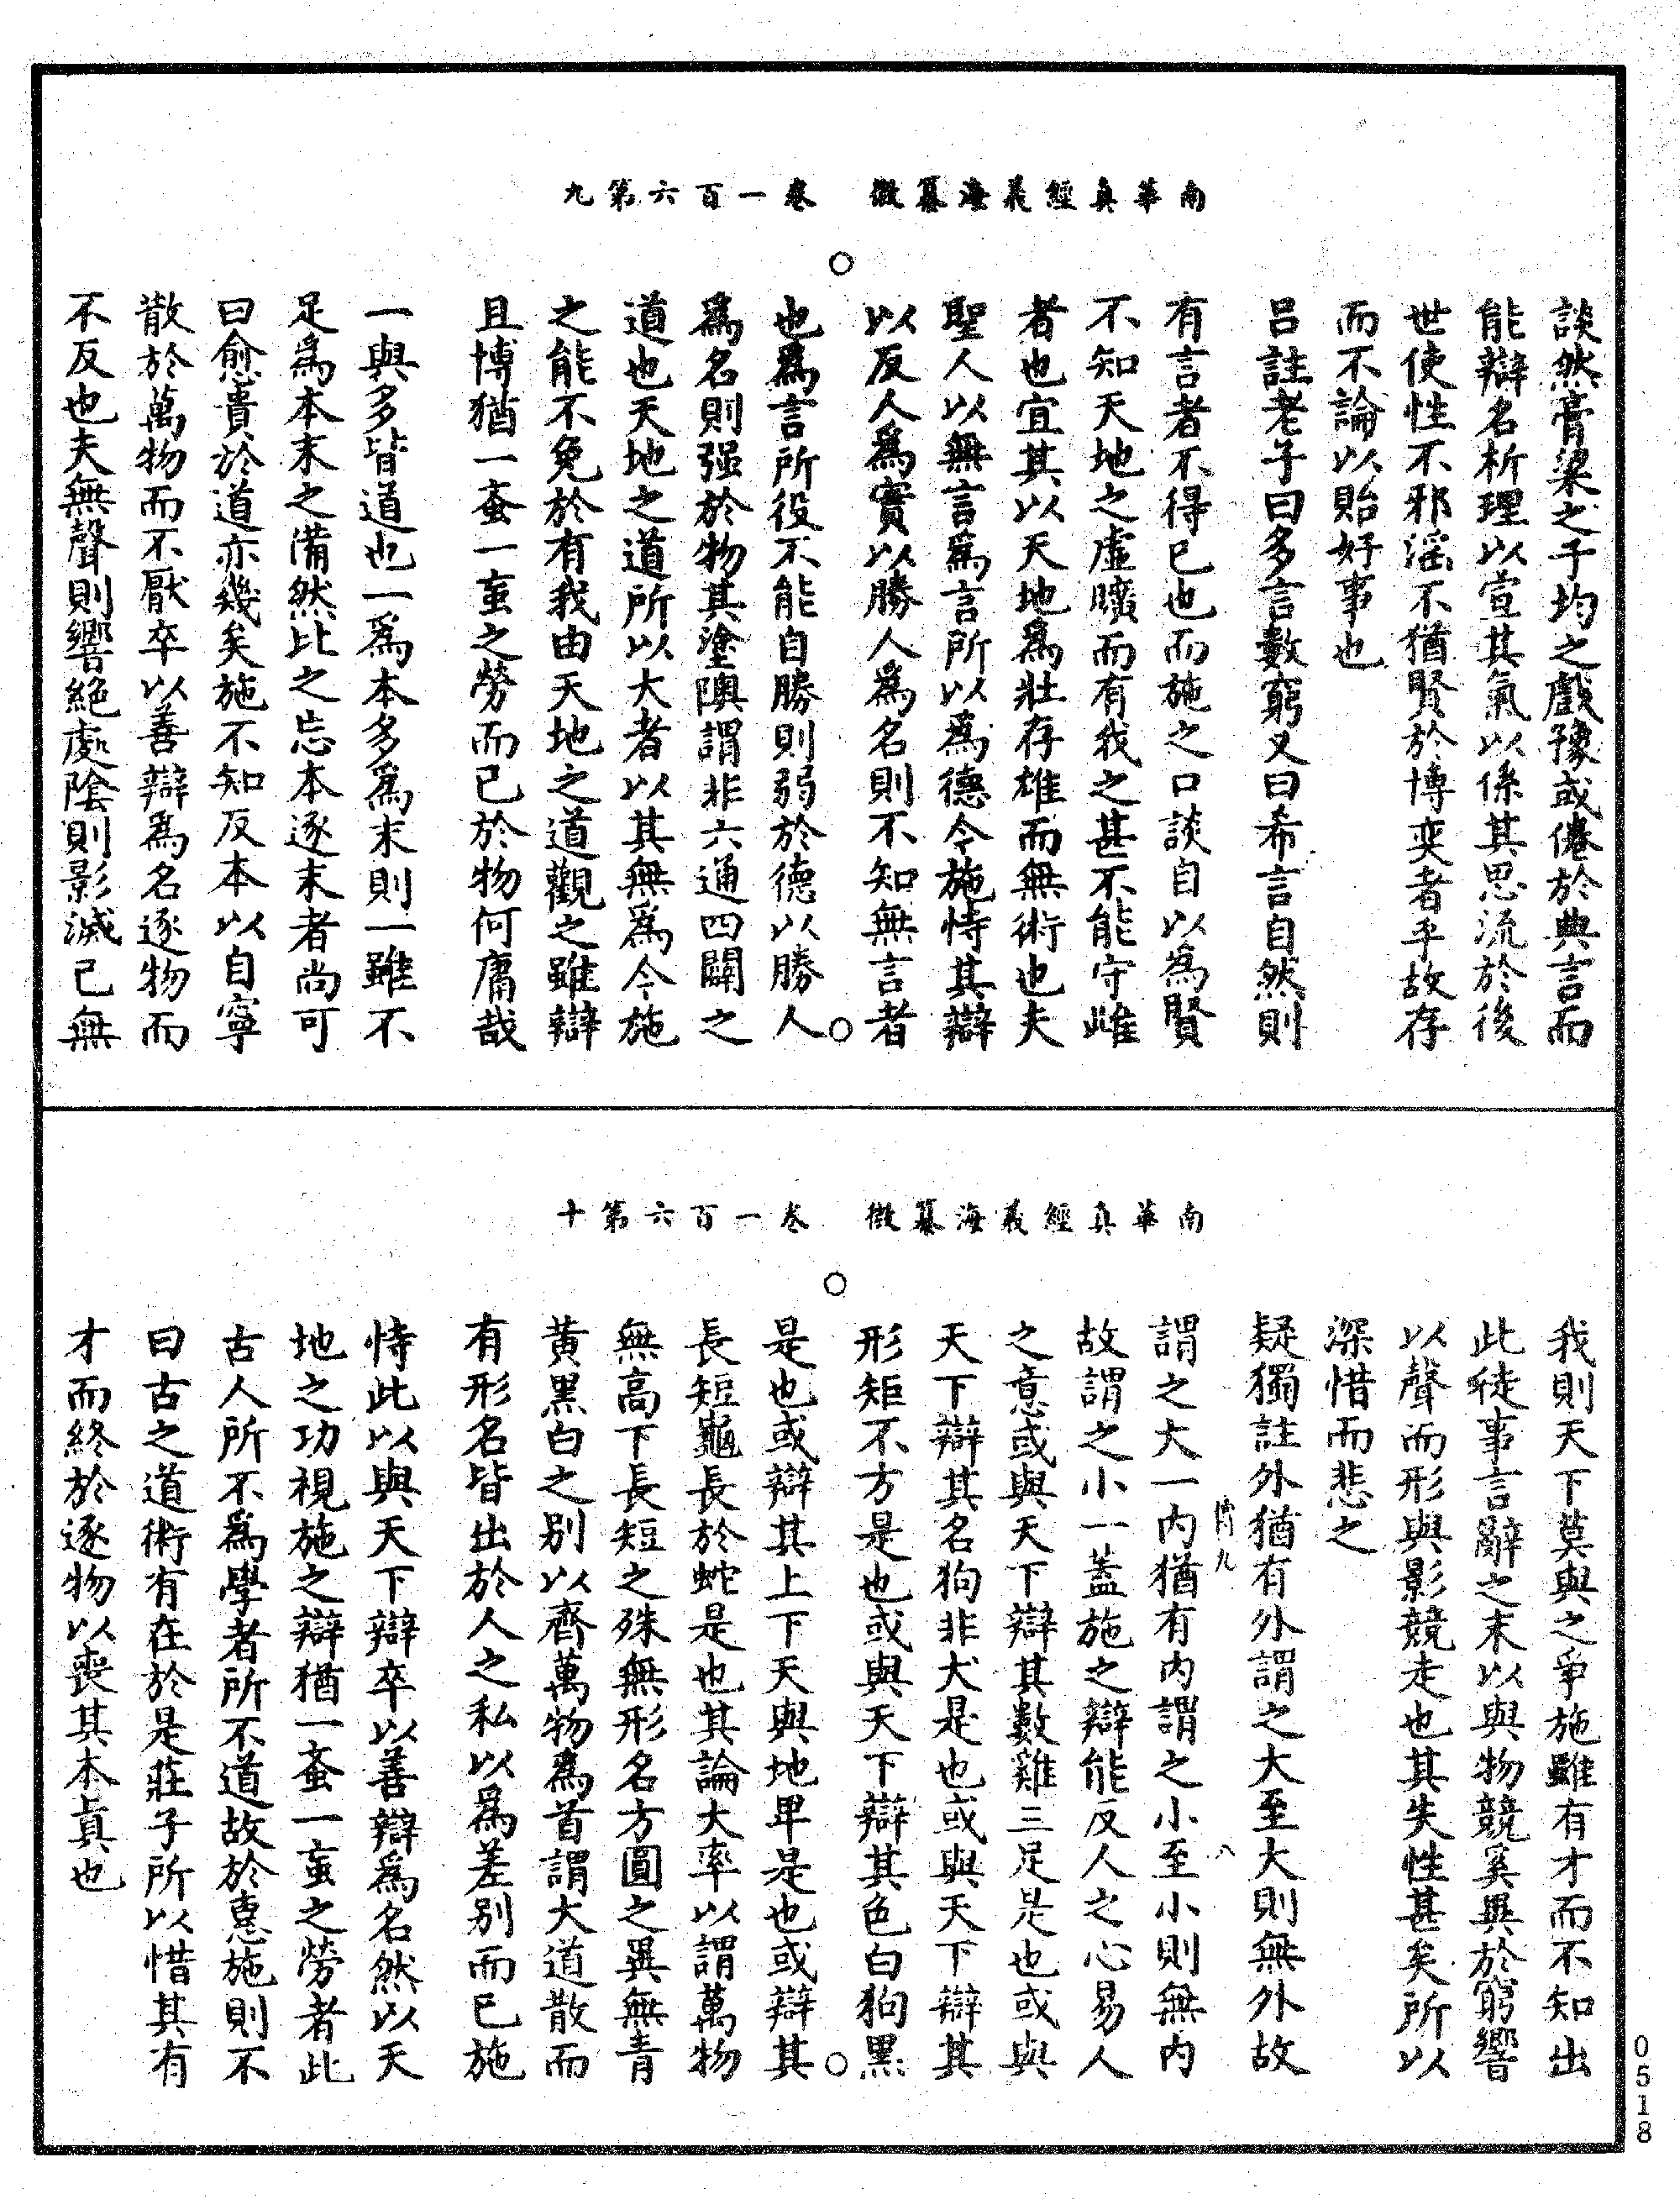 南華真經義海纂微　卷一百六第九
談然膏粱之子均之戲豫或倦於典言而
能辯名析理以宣其氣以係其思流於後
世使性不邪淫不猶賢於博奕者乎故存
而不論以貽好事也
呂註老子曰多言數窮又曰希言自然則
有言者不得已也而施之口談自以為賢
不知天地之虛曠而有我之甚不能守雌
者也宜其以天地爲壯存雄而無術也夫
聖人以無言爲言所以爲德今施恃其辯
以反人爲實以勝人爲名則不知無言者
也爲言所役不能自勝則弱於德以勝人
爲名則强於物其塗隩謂非六通四闢之
道也天地之道所以大者以其無爲今施
之能不免於有我由天地之道觀之雖辯
且博猶一蚉一䖟之勞而已於物何庸哉
一與多皆道也一爲本多爲末則一雖不
足爲本末之備然比之忘本逐末者尚可
曰愈貴於道亦幾矣施不知反本以自寧
散於萬物而不厭卒以善辯爲名逐物而
不反也夫無聲則響絶處陰則影滅已無
南華真經義海纂微　卷一百六第十
我則天下莫與之爭施雖有才而不知出
此徒事言辭之末以與物競奚異於窮響
以聲而形與影競走也其失性甚矣所以
深惜而悲之
疑獨註外猶有外謂之大至大則無外故
謂之大一內猶有內謂之小至小則無內
故謂之小一蓋施之辯能反人之心易人
之意或與天下辯其數雞三足是也或與
天下辯其名狗非犬是也或與天下辯其
形矩不方是也或與天下辯其色白狗黑
是也或辯其上下天與地卑是也或辯其
長短龜長於蛇是也其論大率以謂萬物
無高下長短之殊無形名方圓之異無青
黃黑白之別以齊萬物爲首謂大道散而
有形名皆出於人之私以爲差別而已施
恃此以與天下辯卒以善辯爲名然以天
地之功視施之辯猶一蚉一䖟之勞者此
古人所不爲學者所不道故於惠施則不
曰古之道術有在於是莊子所以惜其有
才而終於逐物以喪其本真也
0518